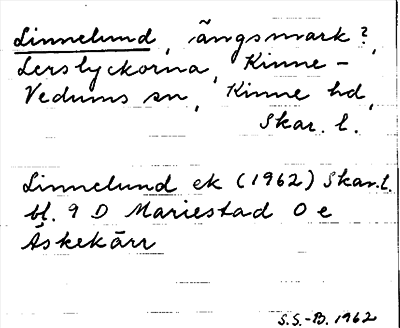 Linnelund, ängsmark?,
Lerslyckorna, Kinne-
Vedums sn, Kinne hd,
Skar. l.
Linnelund ek (1962) Skar. l.
bl. 9 D Mariestad O e
Äskekärr
S.S.-B. 1962